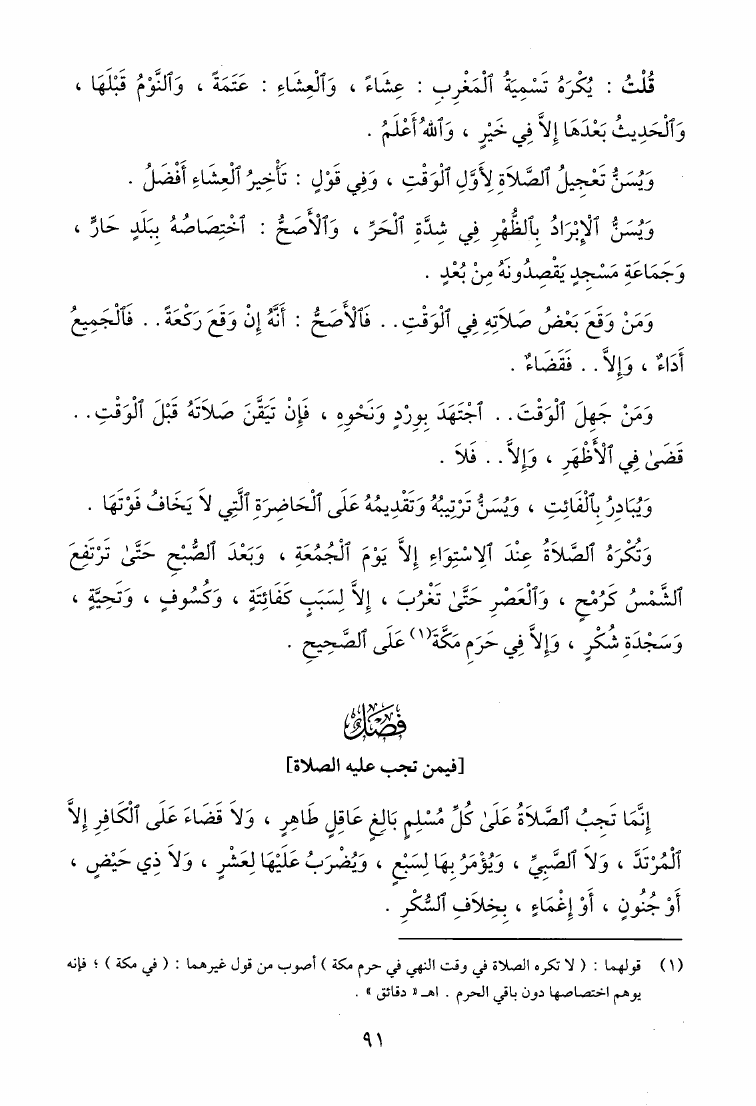 قُلْتُ : يُكْرَهُ تَسْمِيَةُ ٱلْمَغْرِبِ : عِشَاءً ، وَٱلْعِشَاءِ : عَتَمَةً ، وَٱلنَّوْمُ قَبْلَهَا ،
وَٱلْحَدِيثُ بَعْدَهَا إِلاَّ فِي خَيْرٍ ، وَٱللهُ أَعْلَمُ .
وَيُسَنُّ تَعْجِيلُ ٱلصَّلاَةِ لِأَوَّلِ ٱلْوَقْتِ ، وَفِي قَوْلٍ : تَأْخِيرُ ٱلْعِشَاءِ أَفْضَلُ .
وَيُسَنُّ ٱلْإِبْرَادُ بِٱلظُّهْرِ فِي شِدَّةِ ٱلْحَرِّ ، وَٱلْأَصَحُّ : ٱخْتِصَاصُهُ بِبَلَدٍ حَارٍّ ،
وَجَمَاعَةِ مَسْجِدٍ يَقْصِدُونَهُ مِنْ بُعْدٍ .
وَمَنْ وَقَعَ بَعْضُ صَلاَتِهِ فِي ٱلْوَقْتِ . . فَٱلْأَصَحُّ : أَنَّهُ إِنْ وَقَعَ رَكْعَةً . . فَٱلْجَمِيعُ
أَدَاءٌ ، وَإِلاَّ . . فَقَضَاءٌ .
وَمَنْ جَهِلَ ٱلْوَقْتَ . . ٱجْتَهَدَ بِوِرْدٍ وَنَحْوِهِ ، فَإِنْ تَيَقَّنَ صَلاَتَهُ قَبْلَ ٱلْوَقْتِ . .
قَضَىٰ فِي ٱلْأَظْهَرِ ، وَإِلاَّ . . فَلاَ .
وَيُبَادِرُ بِٱلْفَائِتِ ، وَيُسَنُّ تَرْتِيبُهُ وَتَقْدِيمُهُ عَلَى ٱلْحَاضِرَةِ ٱلَّتِي لاَ يَخَافُ فَوْتَهَا .
وَتُكْرَهُ ٱلصَّلاَةُ عِنْدَ ٱلِاسْتِوَاءِ إِلاَّ يَوْمَ ٱلْجُمُعَةِ ، وَبَعْدَ ٱلصُّبْحِ حَتَّىٰ تَرْتَفِعَ
ٱلشَّمْسُ كَرُمْحٍ ، وَٱلْعَصْرِ حَتَّىٰ تَغْرُبَ ، إِلاَّ لِسَبَبٍ كَفَائِتَةٍ ، وَكُسُوفٍ ، وَتَحِيَّةٍ ،
وَسَجْدَةِ شُكْرٍ ، وَإِلاَّ فِي حَرَمِ مَكَّةَ(١) عَلَى ٱلصَّحِيحِ .
فَصْلٌ
[فيمن تجب عليه الصلاة]
إِنَّمَا تَجِبُ ٱلصَّلاَةُ عَلَىٰ كُلِّ مُسْلِمٍ بَالِغٍ عَاقِلٍ طَاهِرٍ ، وَلاَ قَضَاءَ عَلَى ٱلْكَافِرِ إِلاَّ
ٱلْمُرْتَدَّ ، وَلاَ ٱلصَّبِيِّ ، وَيُؤْمَرُ بِهَا لِسَبْعٍ ، وَيُضْرَبُ عَلَيْهَا لِعَشْرٍ ، وَلاَ ذِي حَيْضٍ ،
أَوْ جُنُونٍ ، أَوْ إِغْمَاءٍ ، بِخِلاَفِ ٱلسُّكْرِ .
(١) قولهما : ( لا تكره الصلاة في وقت النهي في حرم مكة ) أصوب من قول غيرهما : ( في مكة ) ؛ فإنه
يوهم اختصاصها دون باقي الحرم . اهـ « دقائق » .
٩١